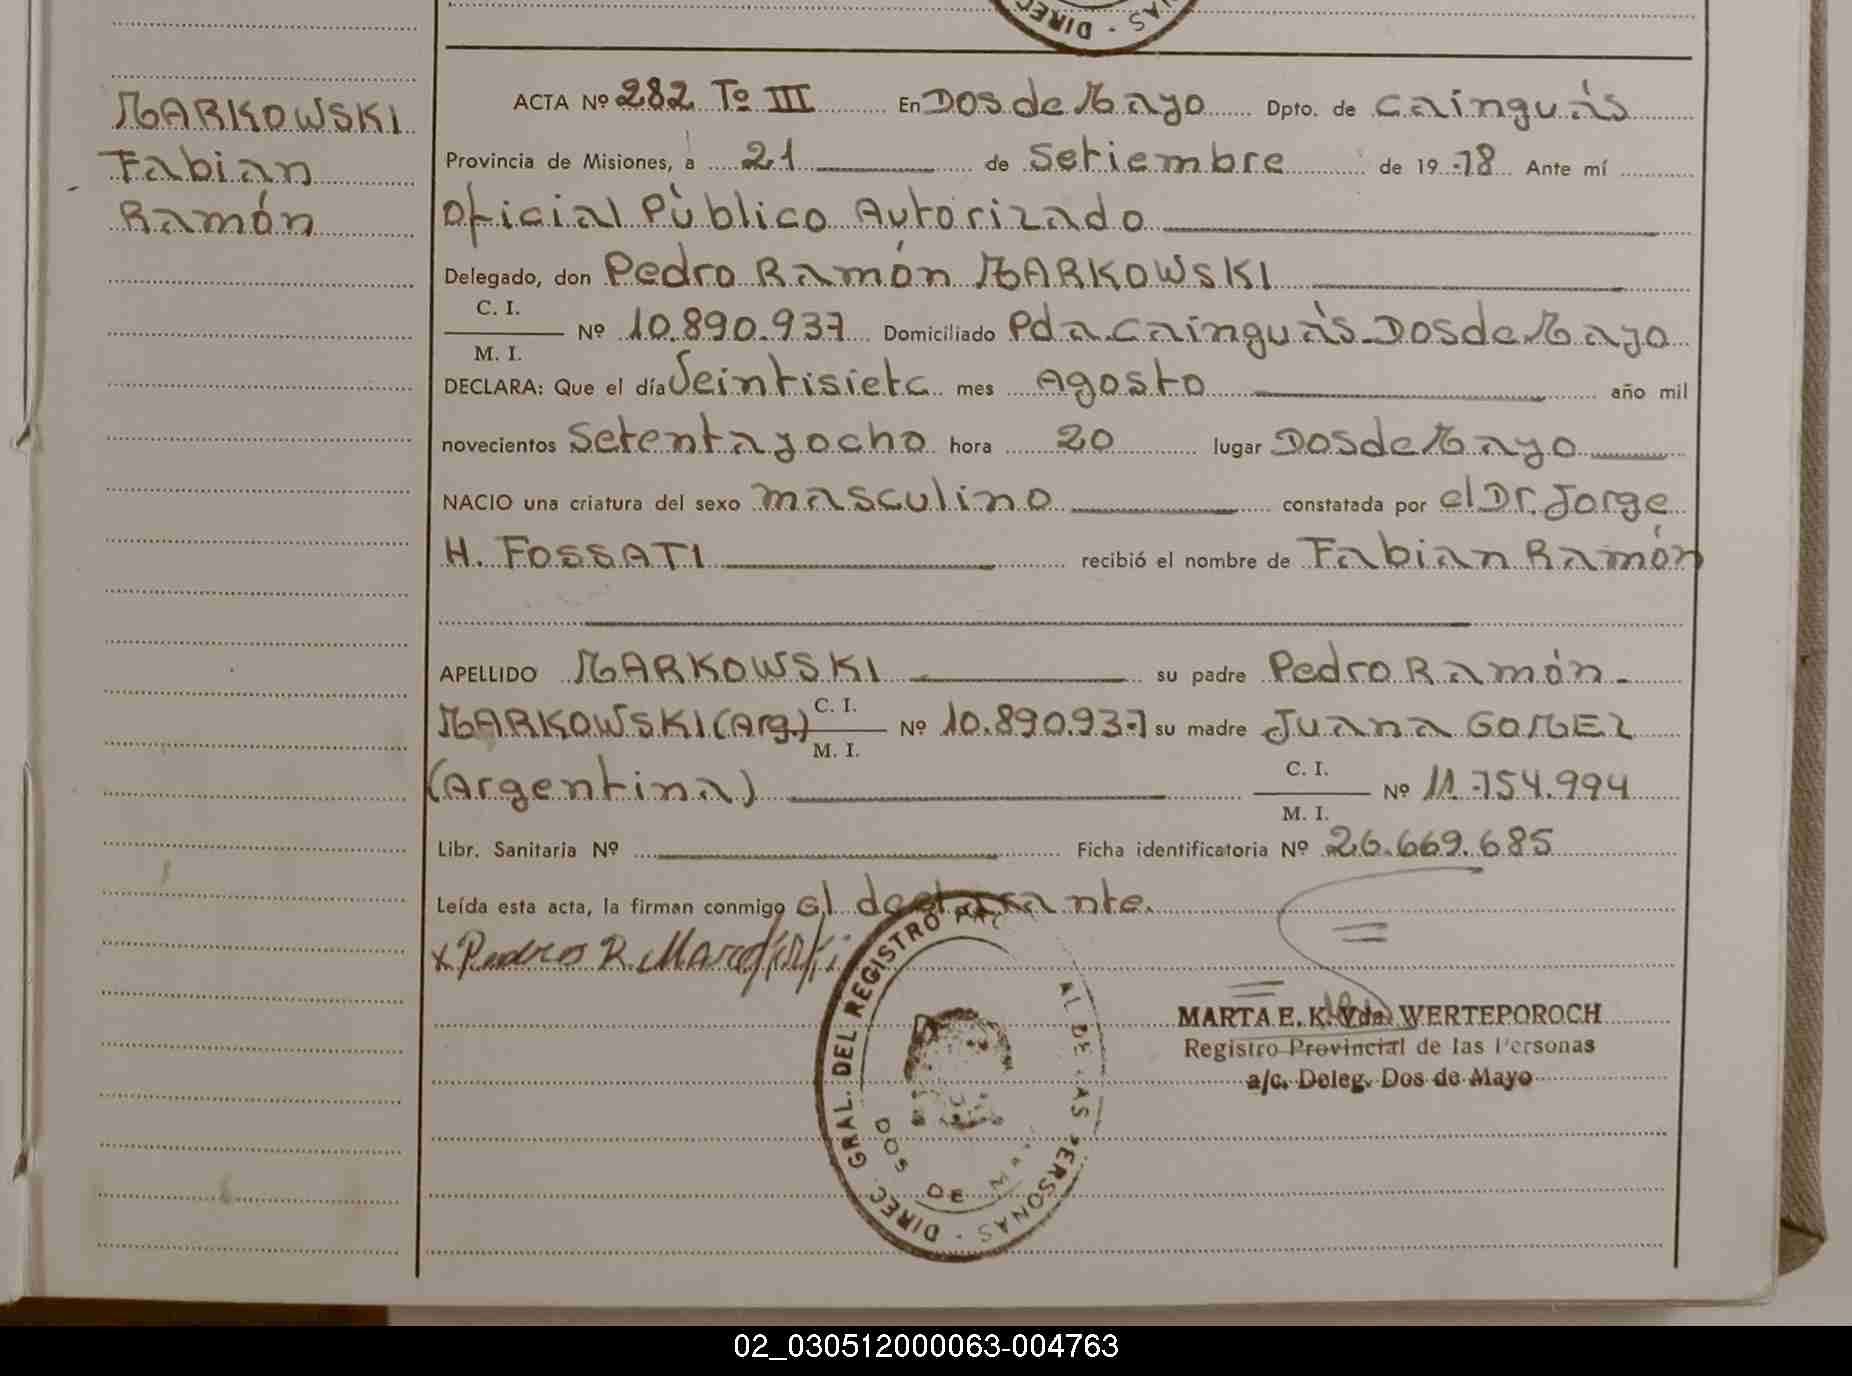 DIREC
NAS
MARKOWSKI
Fabian
Ramón
ACTA Nº 282 Tº III En Dos de Mayo Dpto. de Cainguás
Provincia de Misiones, a 21 de Setiembre de 19 78 Ante mí
Oficial Público Autorizado
Delegado, don Pedro Ramón MARKOWSKI
C. I.
M. I.
Nº 10.890.937 Domiciliado Pda. Cainguás - Dos de Mayo
DECLARA: Que el día Veintisiete mes Agosto año mil
novecientos Setenta y ocho hora 20 lugar Dos de Mayo
NACIO una criatura del sexo masculino constatada por el Dr. Jorge
H. FOSSATI recibió el nombre de Fabian Ramón
APELLIDO MARKOWSKI su padre Pedro Ramón -
MARKOWSKI (Arg.) C. I. M. I. Nº 10.890.937 su madre Juana GOMEZ
(Argentina) C. I. M. I. Nº 11.754.994
Libr. Sanitaria Nº Ficha identificatoria Nº 26.669.685
Leída esta acta, la firman conmigo el declarante.
x Pedro R.
DIREC. GRAL. DEL REGISTRO AL DE LAS PERSONAS
DOS DE M
MARTA E. K. Vda. WERTEPOROCH
Registro Provincial de las Personas
a/c. Deleg. Dos de Mayo
02_030512000063-004763